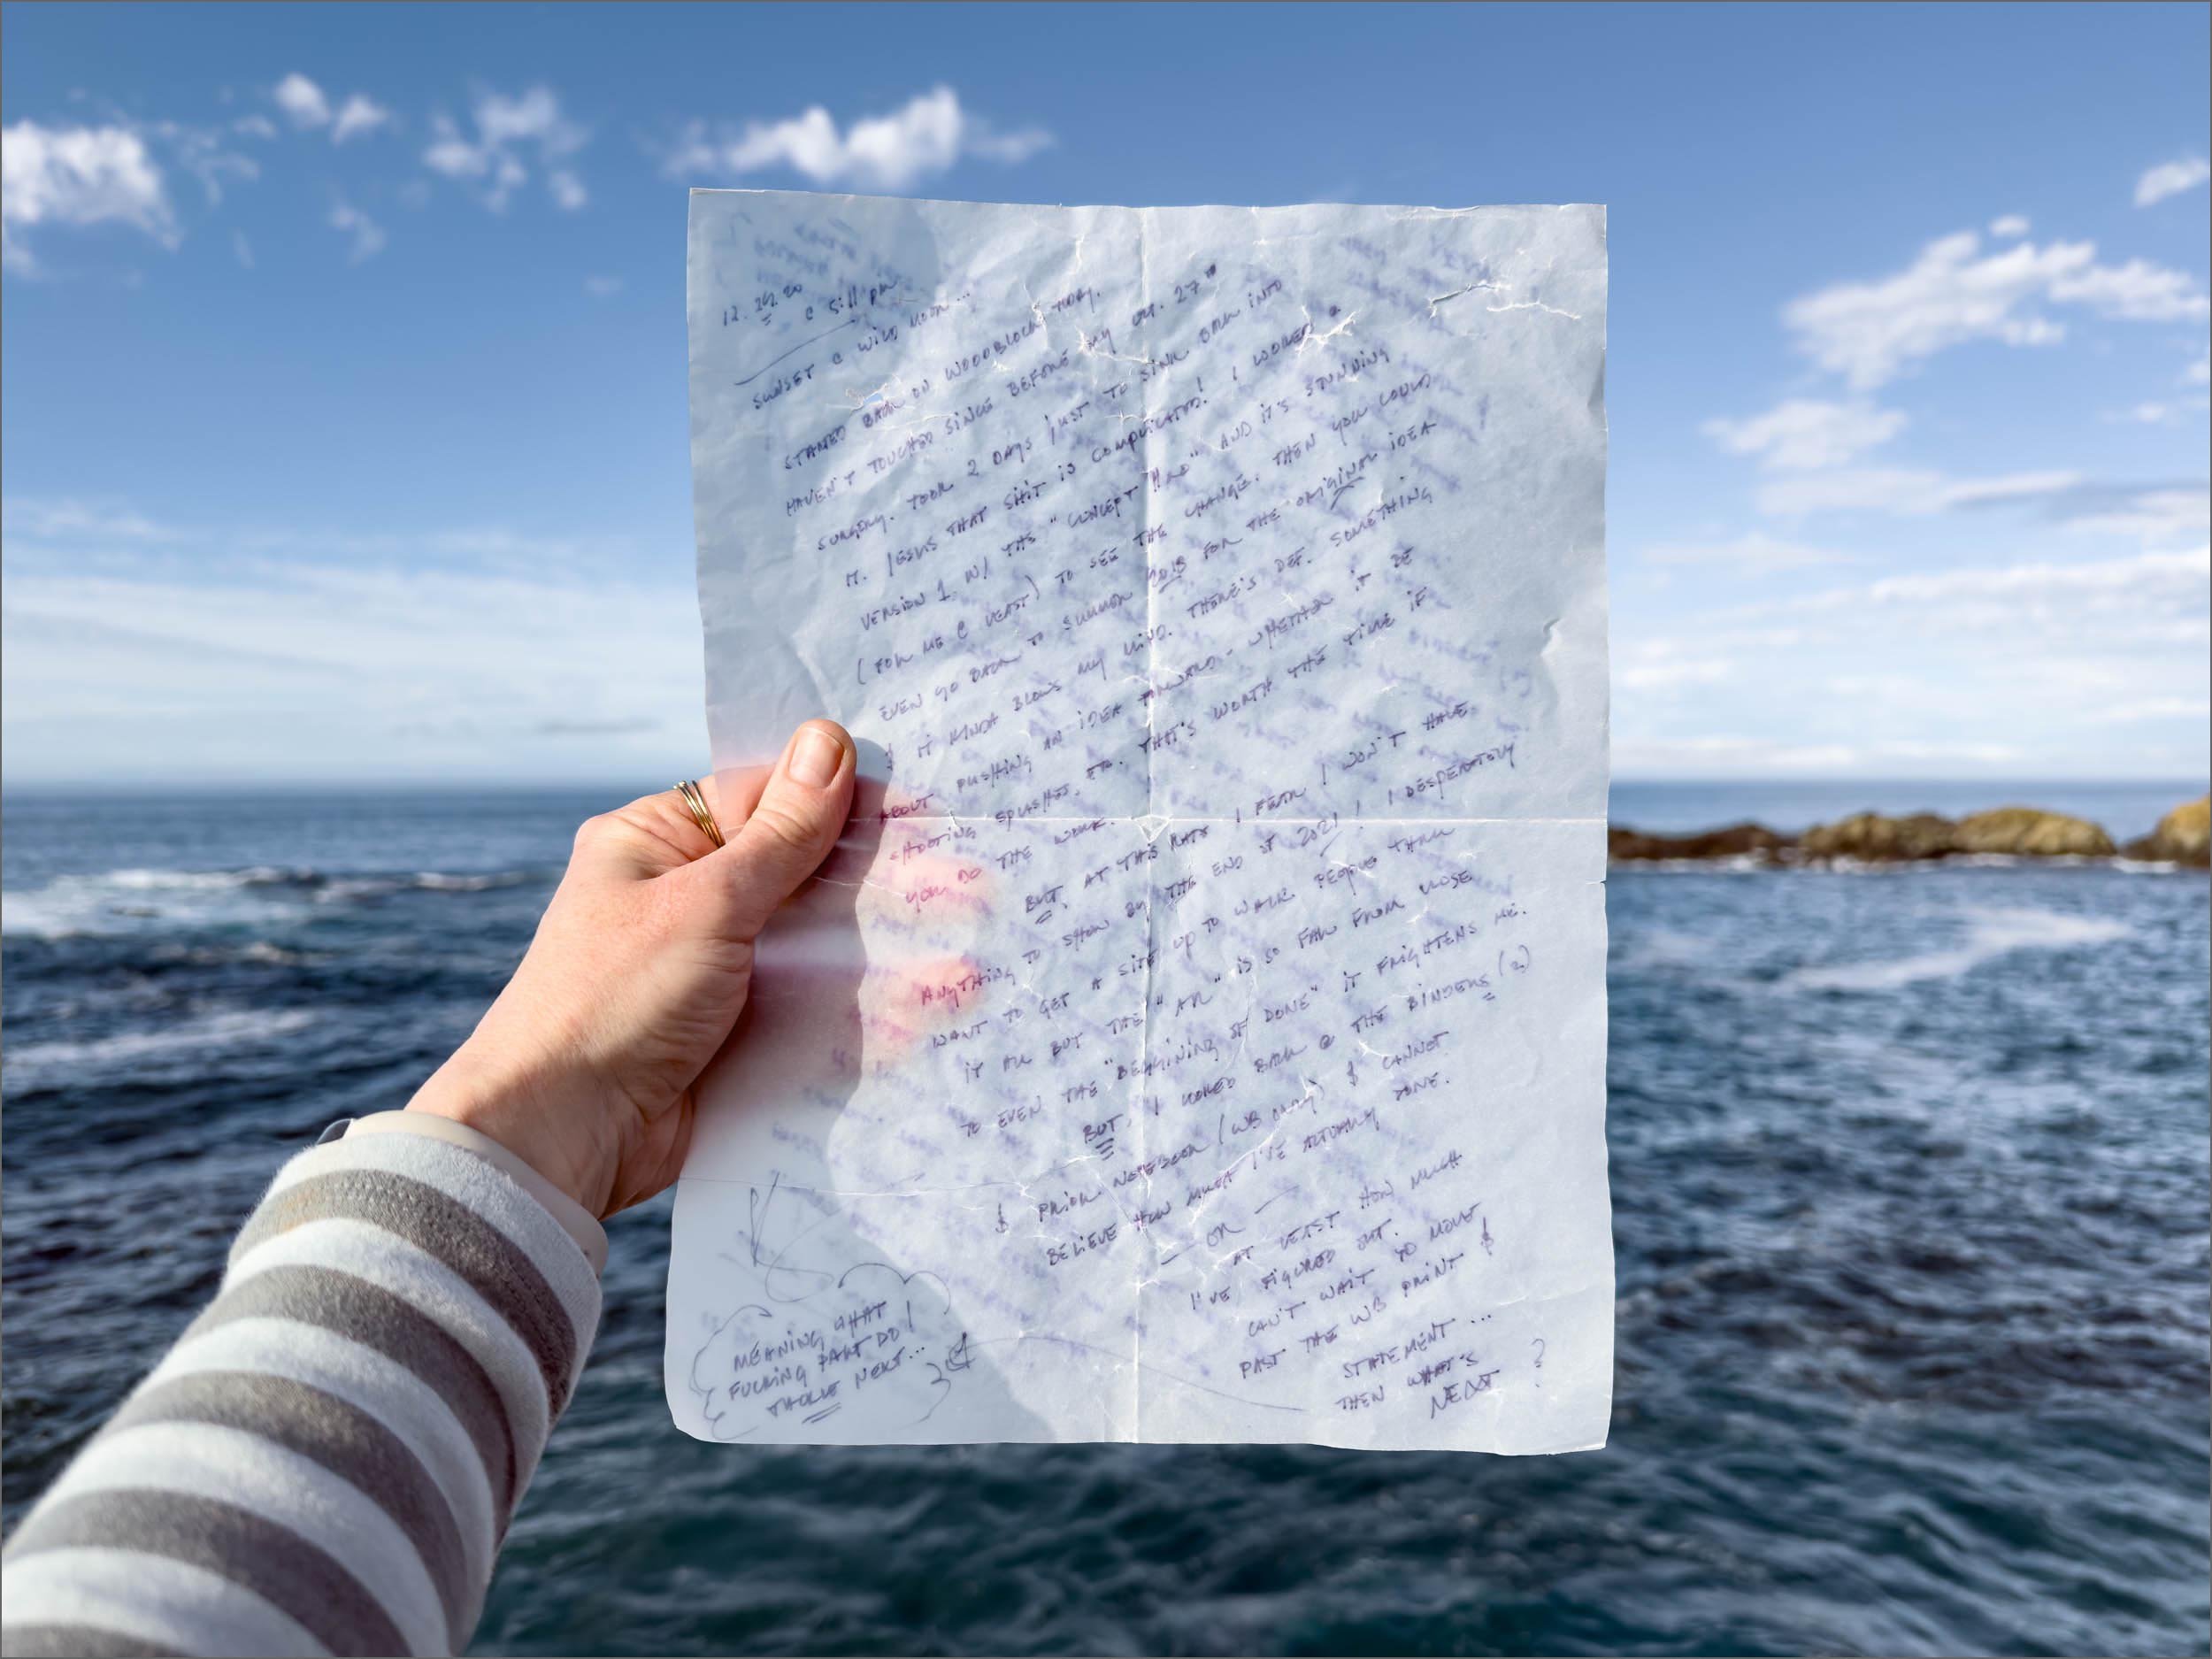 12.29.20 @ 5:11 PM
SUNSET @ WILD MOON...
STARTED BACK ON WOODBLOCK TODAY.
HAVEN'T TOUCHED SINCE BEFORE MY OCT. 27TH
SURGERY. TOOK 2 DAYS JUST TO SINK BACK INTO
IT. JESUS THAT SHIT IS COMPLICATED! I LOOKED @
VERSION 1 W/ THE "CONCEPT AND" AND IT'S STUNNING
(FOR ME @ LEAST) TO SEE THE CHANGE. THEN YOU COULD
EVEN GO BACK TO SUMMER 2018 FOR THE ORIGINAL IDEA
& IT KINDA BLOWS MY MIND. THERE'S DEF. SOMETHING
ABOUT PUSHING AN IDEA FORWARD - WHETHER IT BE
SHOOTING SPLASHES, ETC. THAT'S WORTH THE TIME IF
YOU DO THE WORK.
BUT, AT THIS RATE I FEAR I WON'T HAVE
ANYTHING TO SHOW BY THE END OF 2021! I DESPERATELY
WANT TO GET A SITE UP TO WALK PEOPLE THRU
IT ALL BUT THE "AR" IS SO FAR FROM CLOSE
TO EVEN THE "BEGINNING OF DONE" IT FRIGHTENS ME.
BUT, I LOOKED BACK @ THE BINDERS (2)
& PRIOR NOTEBOOK (WB ONLY) & CANNOT
BELIEVE HOW MUCH I'VE ACTUALLY DONE.
— OR —
AT LEAST HOW MUCH
I'VE FIGURED OUT.
CAN'T WAIT TO MOVE
PAST THE WB PRINT &
STATEMENT...
THEN WHAT'S
NEXT?
MEANING WHAT
FUCKING PART DO I
TACKLE NEXT...